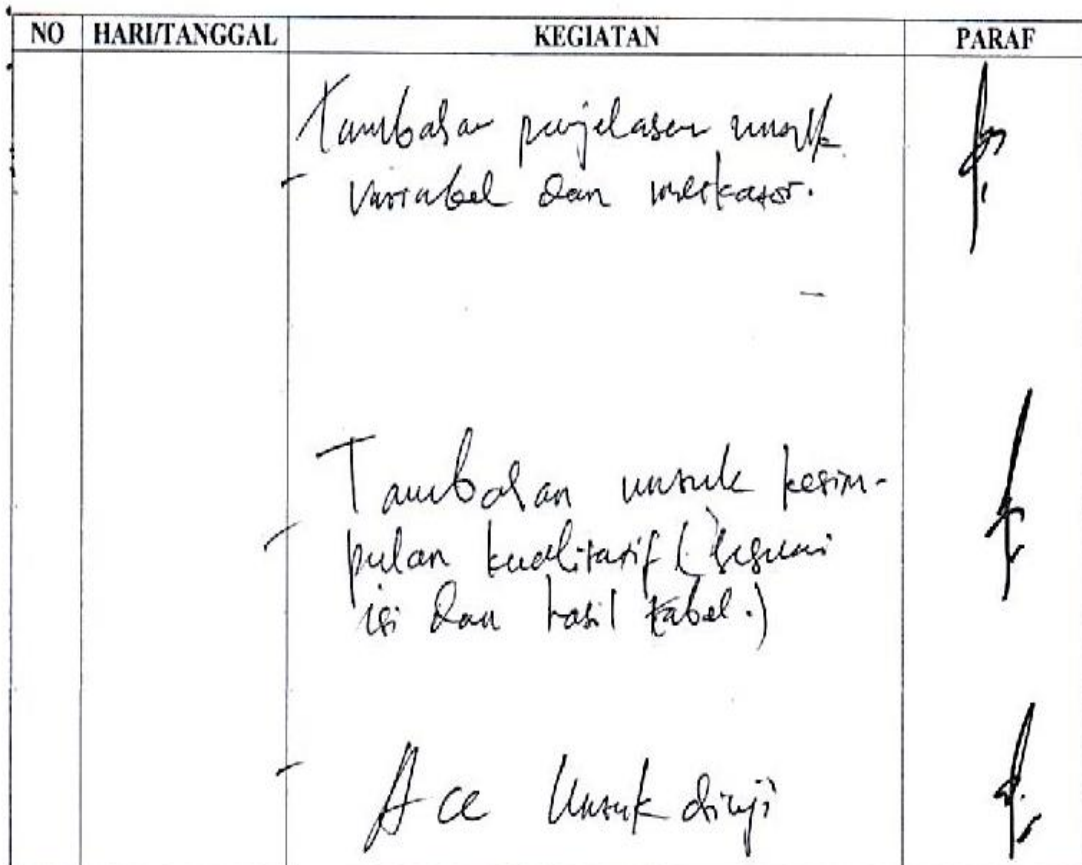 NO HARI/TANGGAL KEGIATAN PARAF
Tambahan penjelasan untuk
variabel dan indikator.
Tambahan untuk kesim-
pulan kualitatif (sesuai
isi dan hasil tabel.)
Acc Untuk diuji